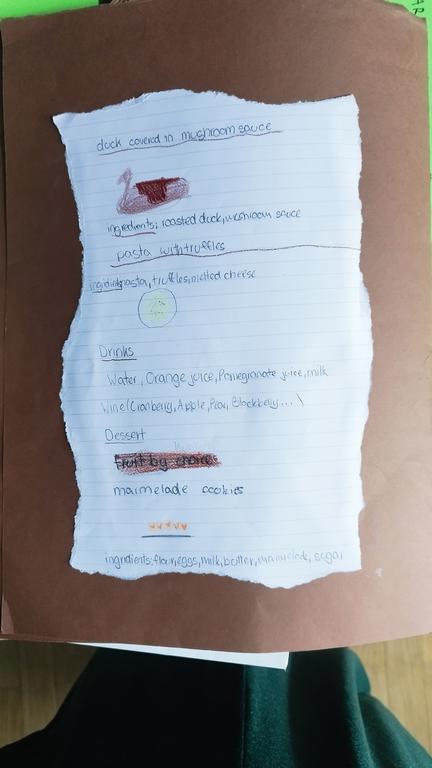 duck covered in mushroom sauce
ingredients: roasted duck, mushroom sauce
pasta with truffles
pasta, truffles, melted cheese
Drinks
Water, Orange juice, Pomegranate juice, milk
Wine (Cranberry, Apple, Pear, Blackberry...\
Dessert
fruit by choice
marmelade cookies
ingridients: flour, eggs, milk, butter, marmelade, sugar